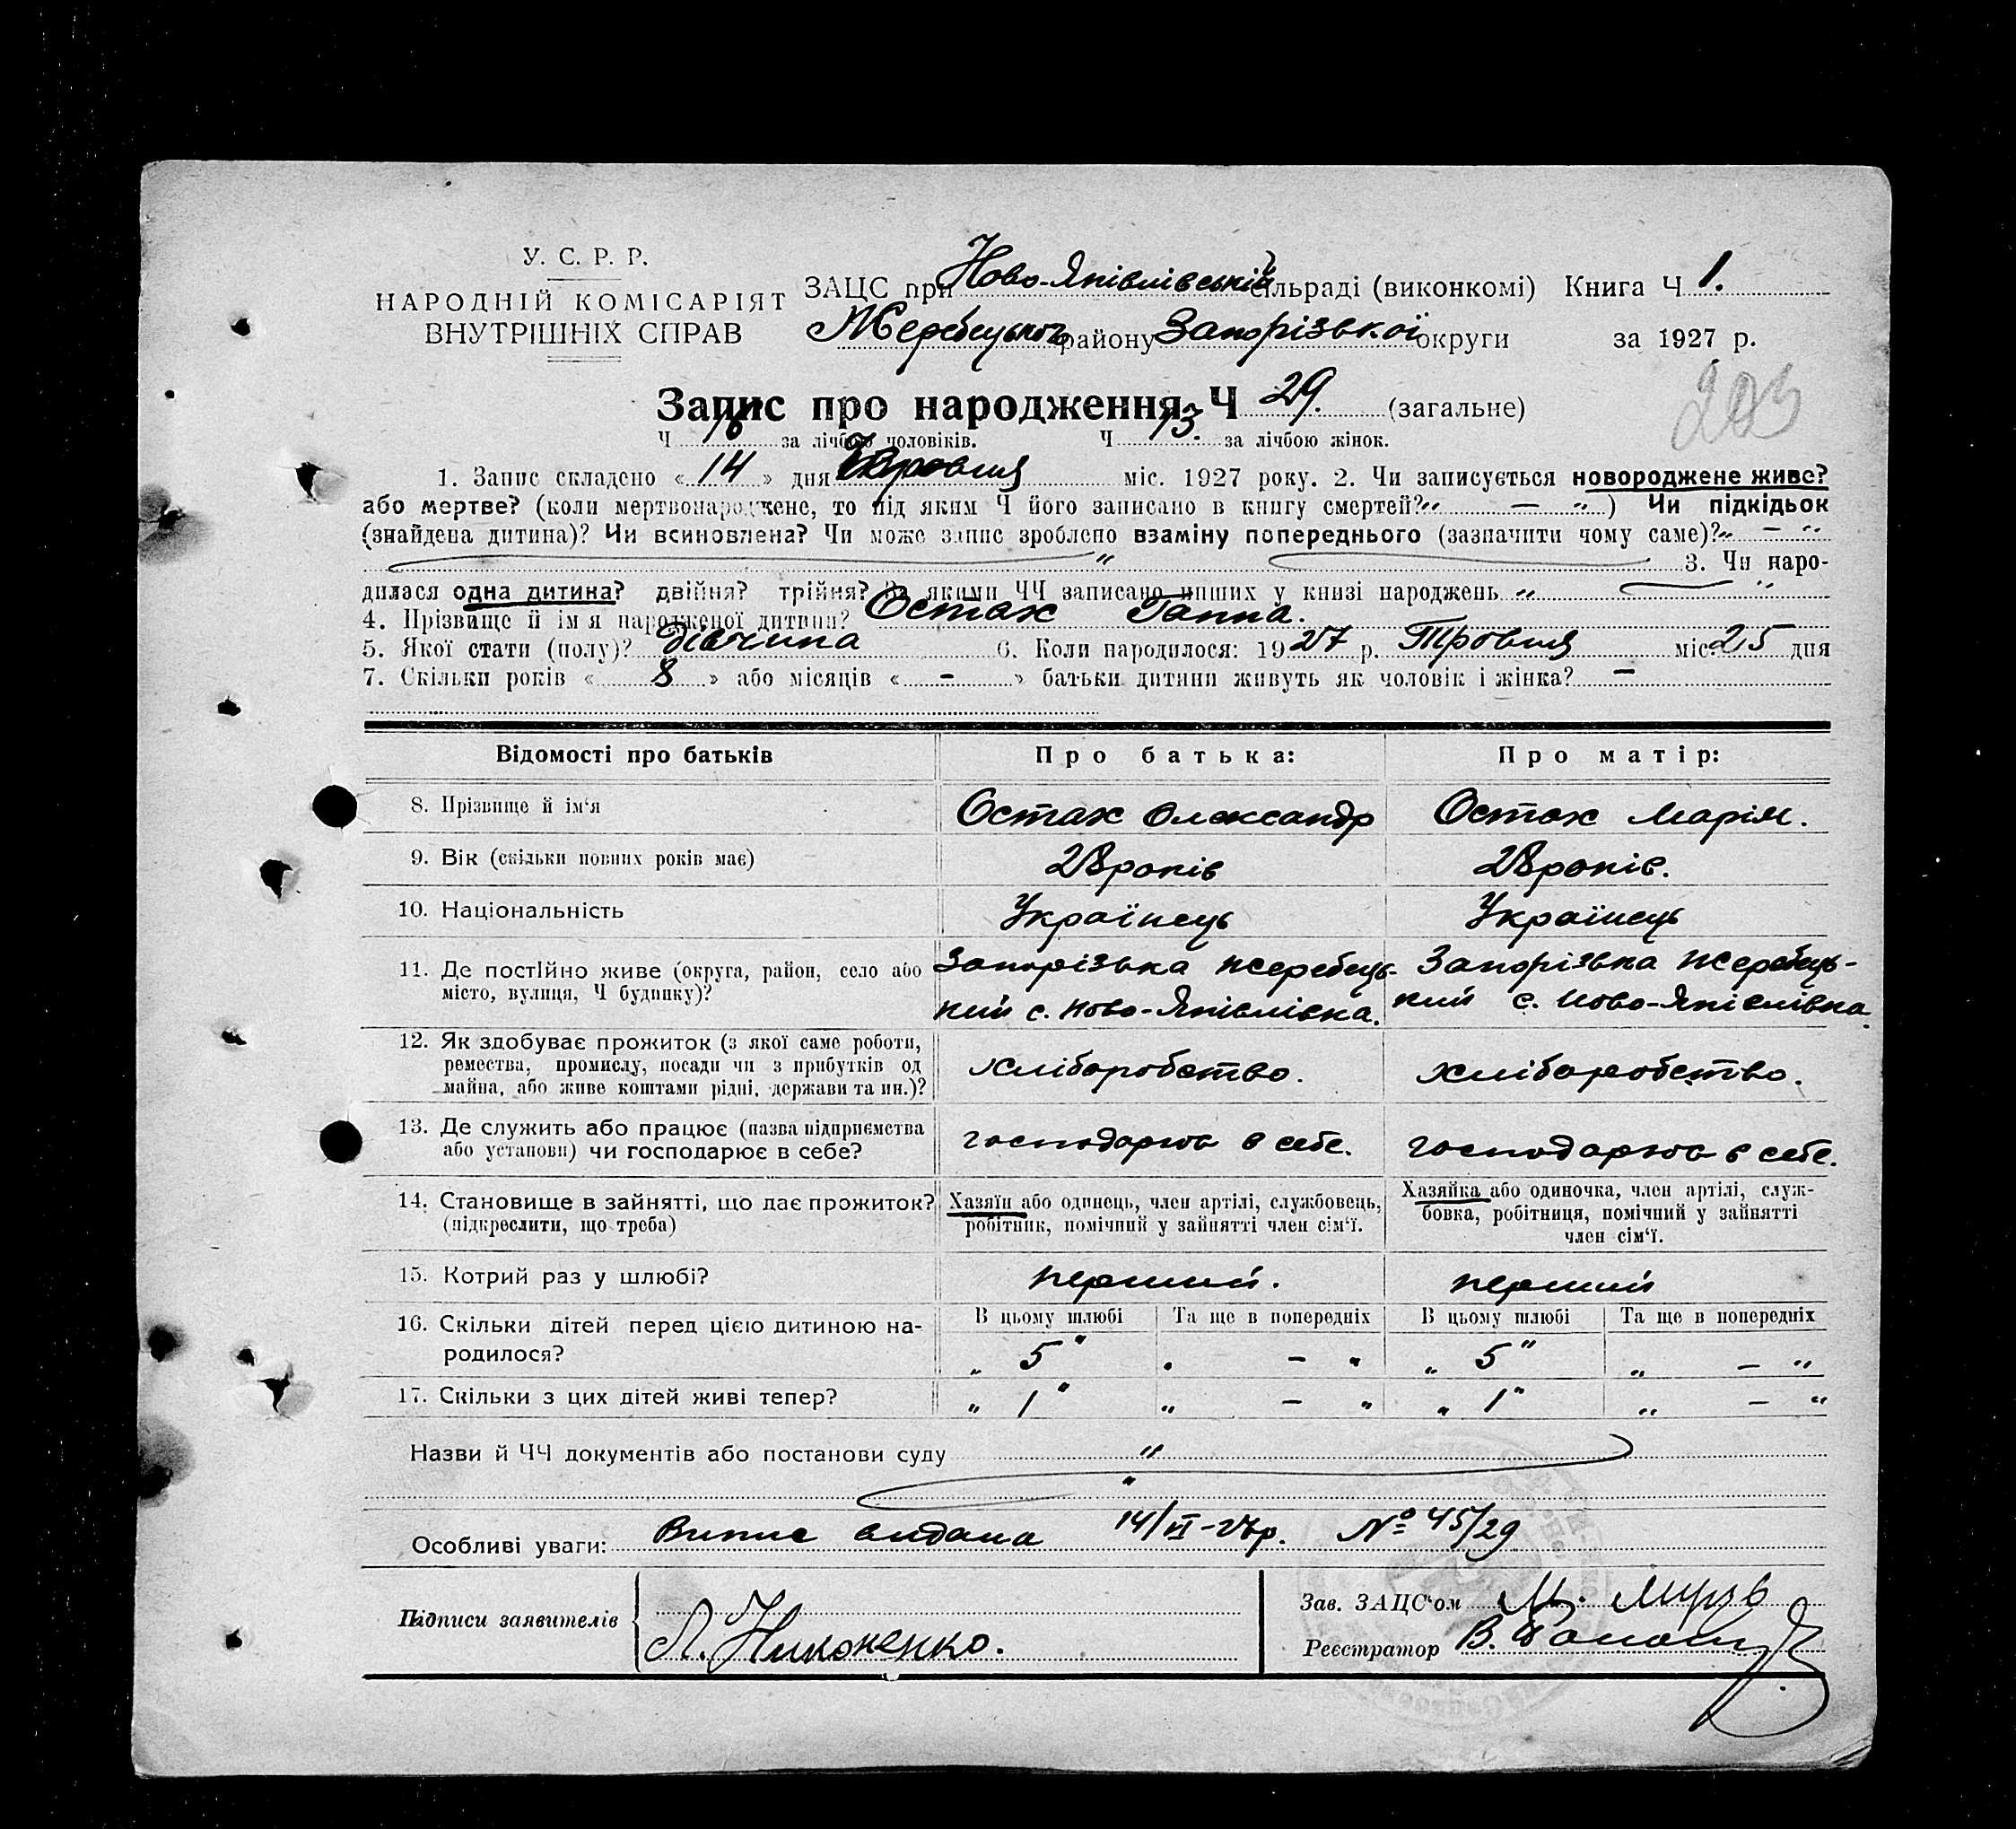 У. С. Р. Р.
НАРОДНІЙ КОМІСАРІЯТ
ВНУТРІШНІХ СПРАВ
ЗАЦС при Ново-Яківлівській сільраді (виконкомі) Книга Ч 1.
Жеребецького району Запорізької округи за 1927 р.
Запис про народження Ч 29. (загальне)
Ч 16 за лічбою чоловіків. Ч 13. за лічбою жінок.
1. Запис складено « 14 » дня міс. 1927 року. 2. Чи записується новороджене живе?
або мертве? (коли мертвонароджене, то під яким Ч його записано в книгу смертей? „ — “ ) Чи підкідьок
(знайдена дитина)? Чи всиновлена? Чи може запис зроблено взаміну попереднього (зазначити чому саме)? „ — “
„ 3. Чи наро-
дилася одна дитина? двійня? трійня? За якими ЧЧ записано инших у книзі народжень „ “
4. Прізвище й ім я народженої дитини? Остах Ганна.
5. Якої стати (полу)? дівчина 6. Коли народилося: 1927 р. Тровня міс. 25 дня
7. Скільки років « 8 » або місяців « - » батьки дитини живуть як чоловік і жінка? —
Відомості про батьків Про батька: Про матір:
8. Прізвище й ім‘я Остах Олександр Остах Марія.
9. Вік (скільки повних років має) 28 років 28 років.
10. Національність Українець Українець
11. Де постійно живе (округа, район, село або місто, вулиця, Ч будинку)? Запорізька Жеребець- Запорізька Жеребець-
кий с. Ново-Яківлівка. кий с. Ново-Яківлівка.
12. Як здобуває прожиток (з якої саме роботи,
ремества, промислу, посади чи з прибутків од хліборобство. хліборобство.
майна, або живе коштами рідні, держави та ин.)?
13. Де служить або працює (назва підприємства
або установи) чи господарює в себе? господарює в себе. господарює в себе.
14. Становище в зайнятті, що дає прожиток? Хазяїн або одинець, член артілі, службовець, Хазяйка або одиночка, член артілі, служ-
(підкреслити, що треба) робітник, помічний у зайнятті член сім‘ї. бовка, робітниця, помічний у зайнятті
член сім‘ї.
15. Котрий раз у шлюбі? перший. перший
16. Скільки дітей перед цією дитиною на- В цьому шлюбі Та ще в попередніх В цьому шлюбі Та ще в попередніх
родилося? „ 5 “ „ — “ „ 5 “ „ — “
17. Скільки з цих дітей живі тепер? „ 1 “ „ — “ „ 1 “ „ — “
Назви й ЧЧ документів або постанови суду „
„
Особливі уваги: Випис видана 14/VI-27р. № 45/29
Підписи заявителів Зав. ЗАЦС‘ом М.
Л. Никоненко. Реєстратор В.